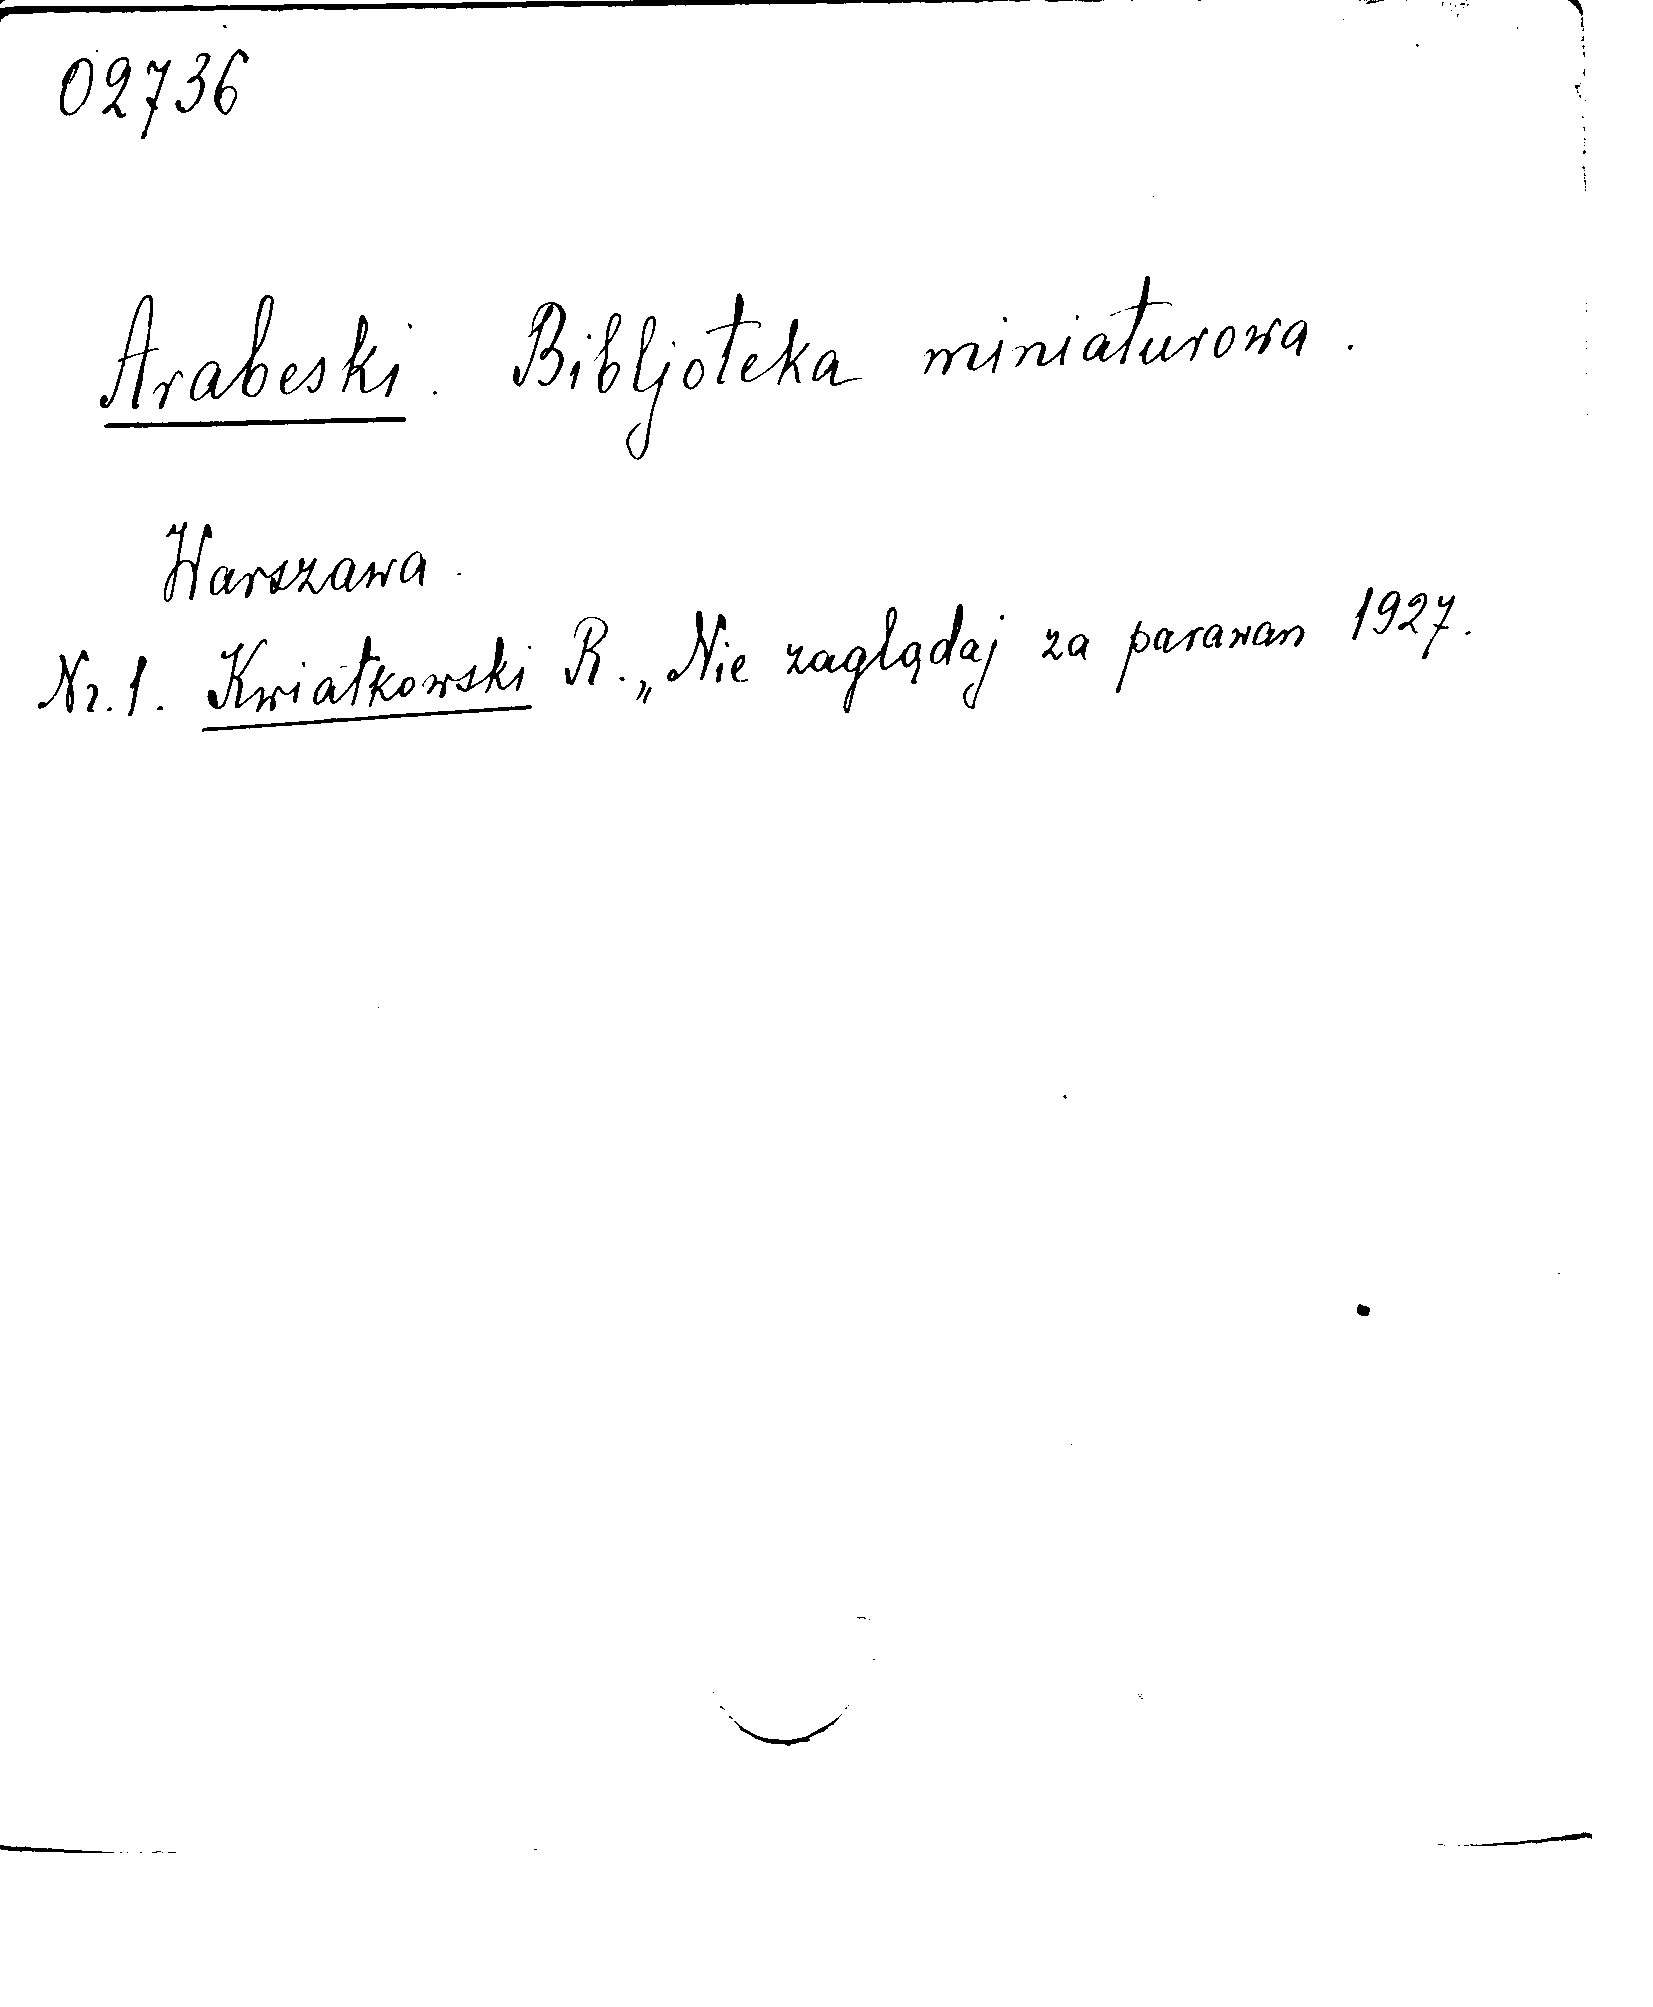 02736
Arabeski. Bibljoteka miniaturowa.
Warszawa.
Nr. 1. Kwiatkowski R. „Nie zaglądaj za parawan 1927.